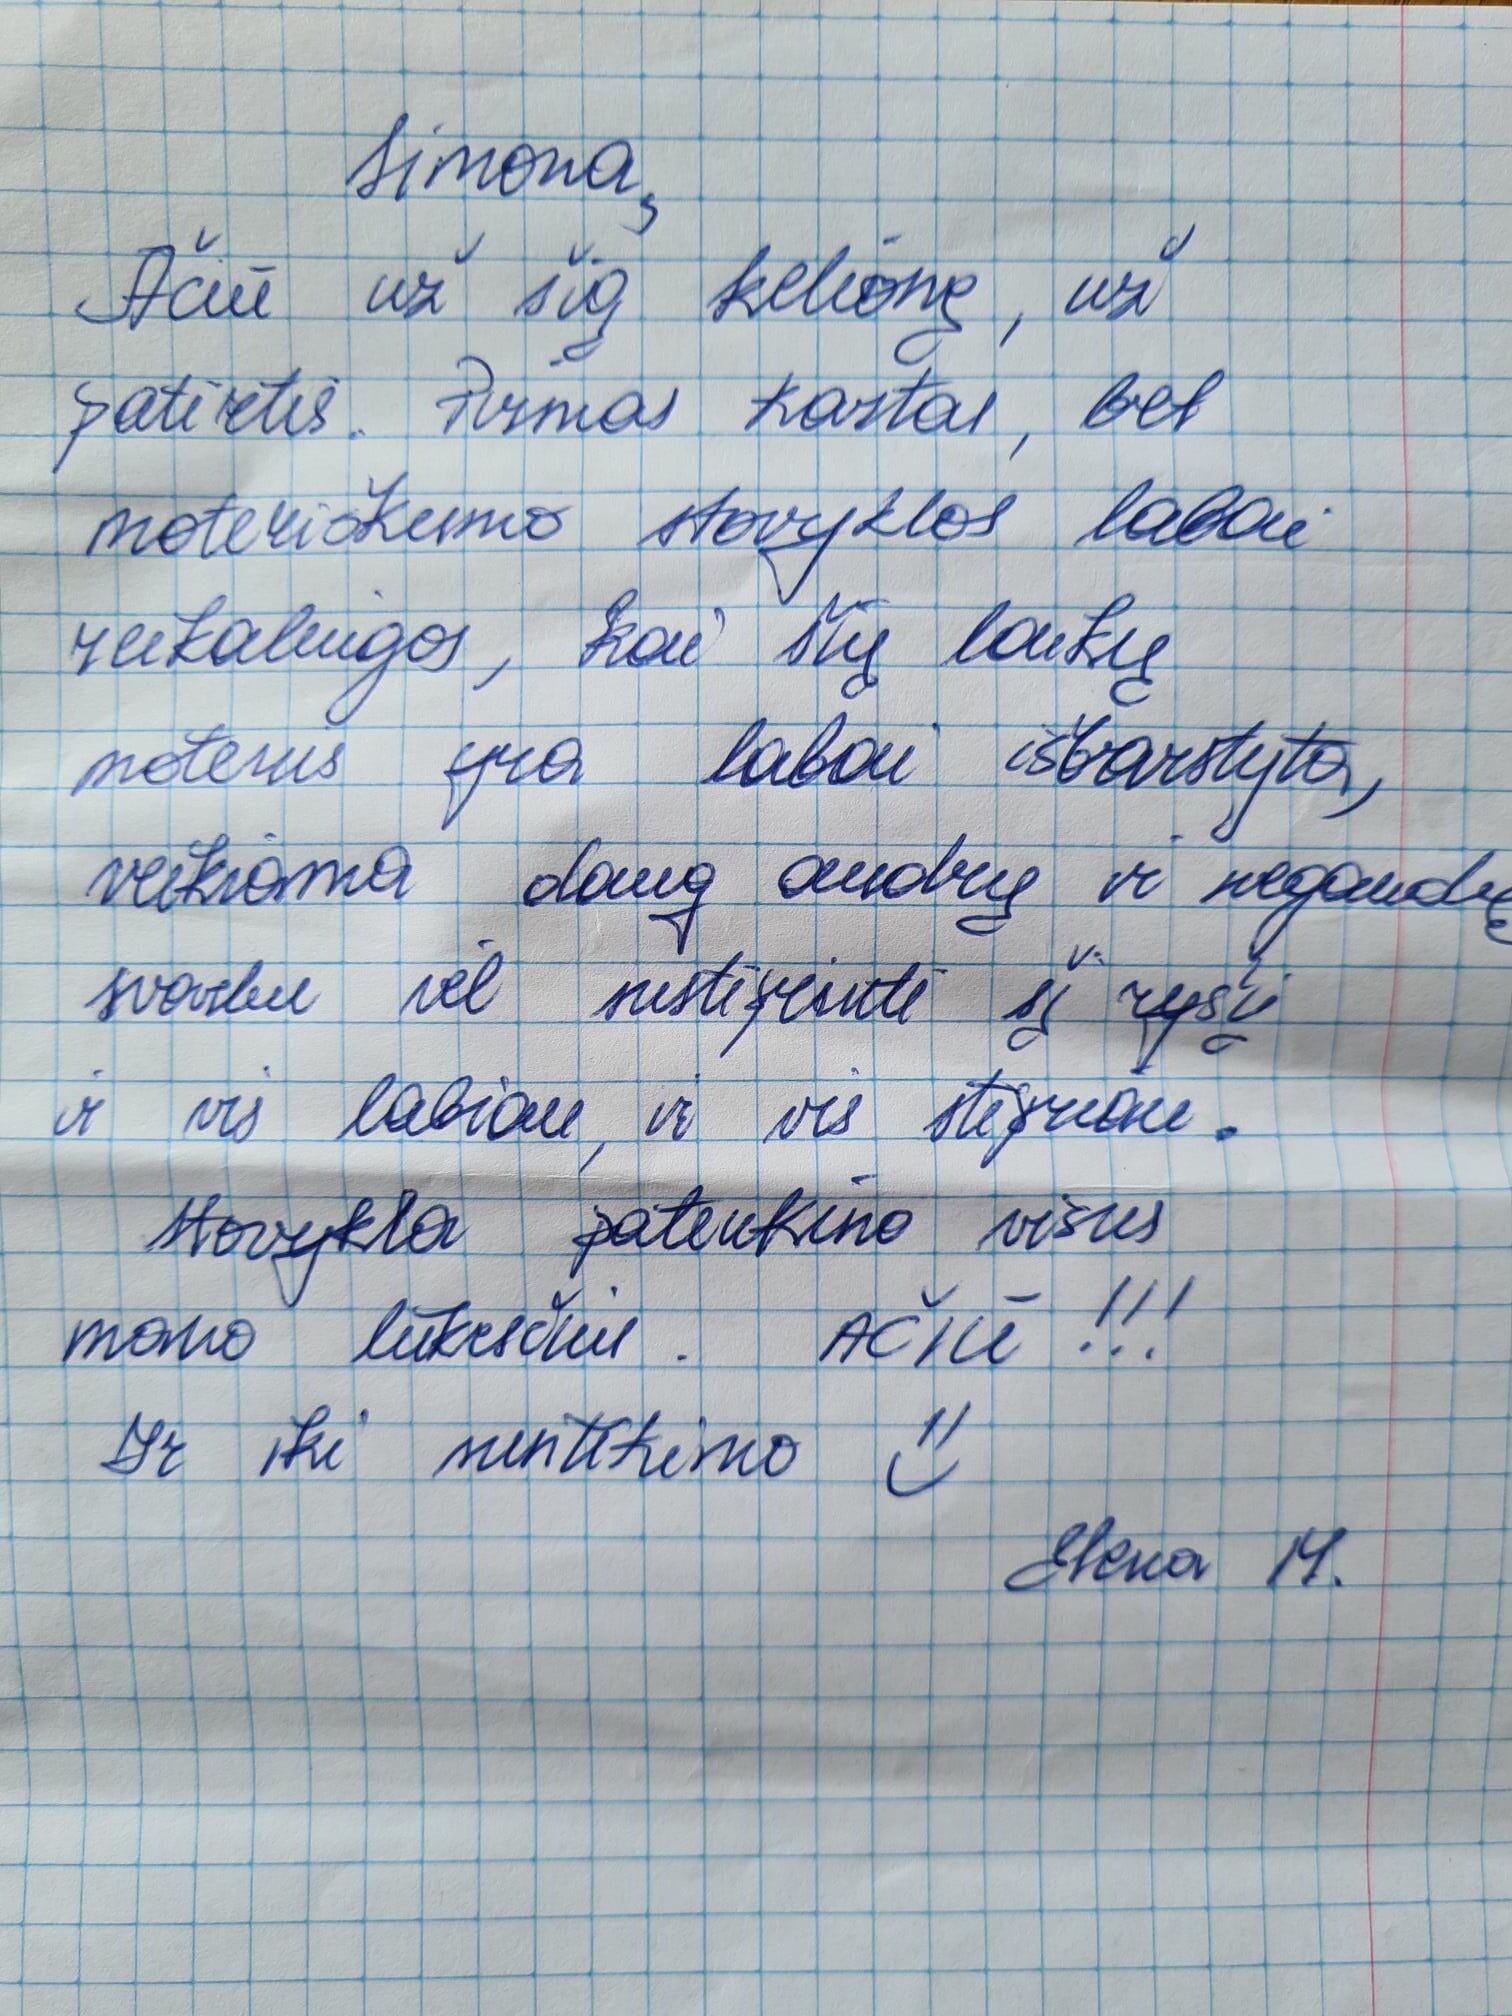 Simona,
Ačiū už šią kelionę, už
patirtis. Pirmas kartas, bet
moteriškumo stovyklos labai
reikalingos, kai šių laikų
moteris yra labai išbarstyta,
veikiama daug audrų ir negandų
svarbu vėl sustiprinti šį ryšį
ir vis labiau, ir vis stipriau.
Stovykla patenkino visus
mano lūkesčius. AČIŪ!!!
Ir iki susitikimo
Elena M.